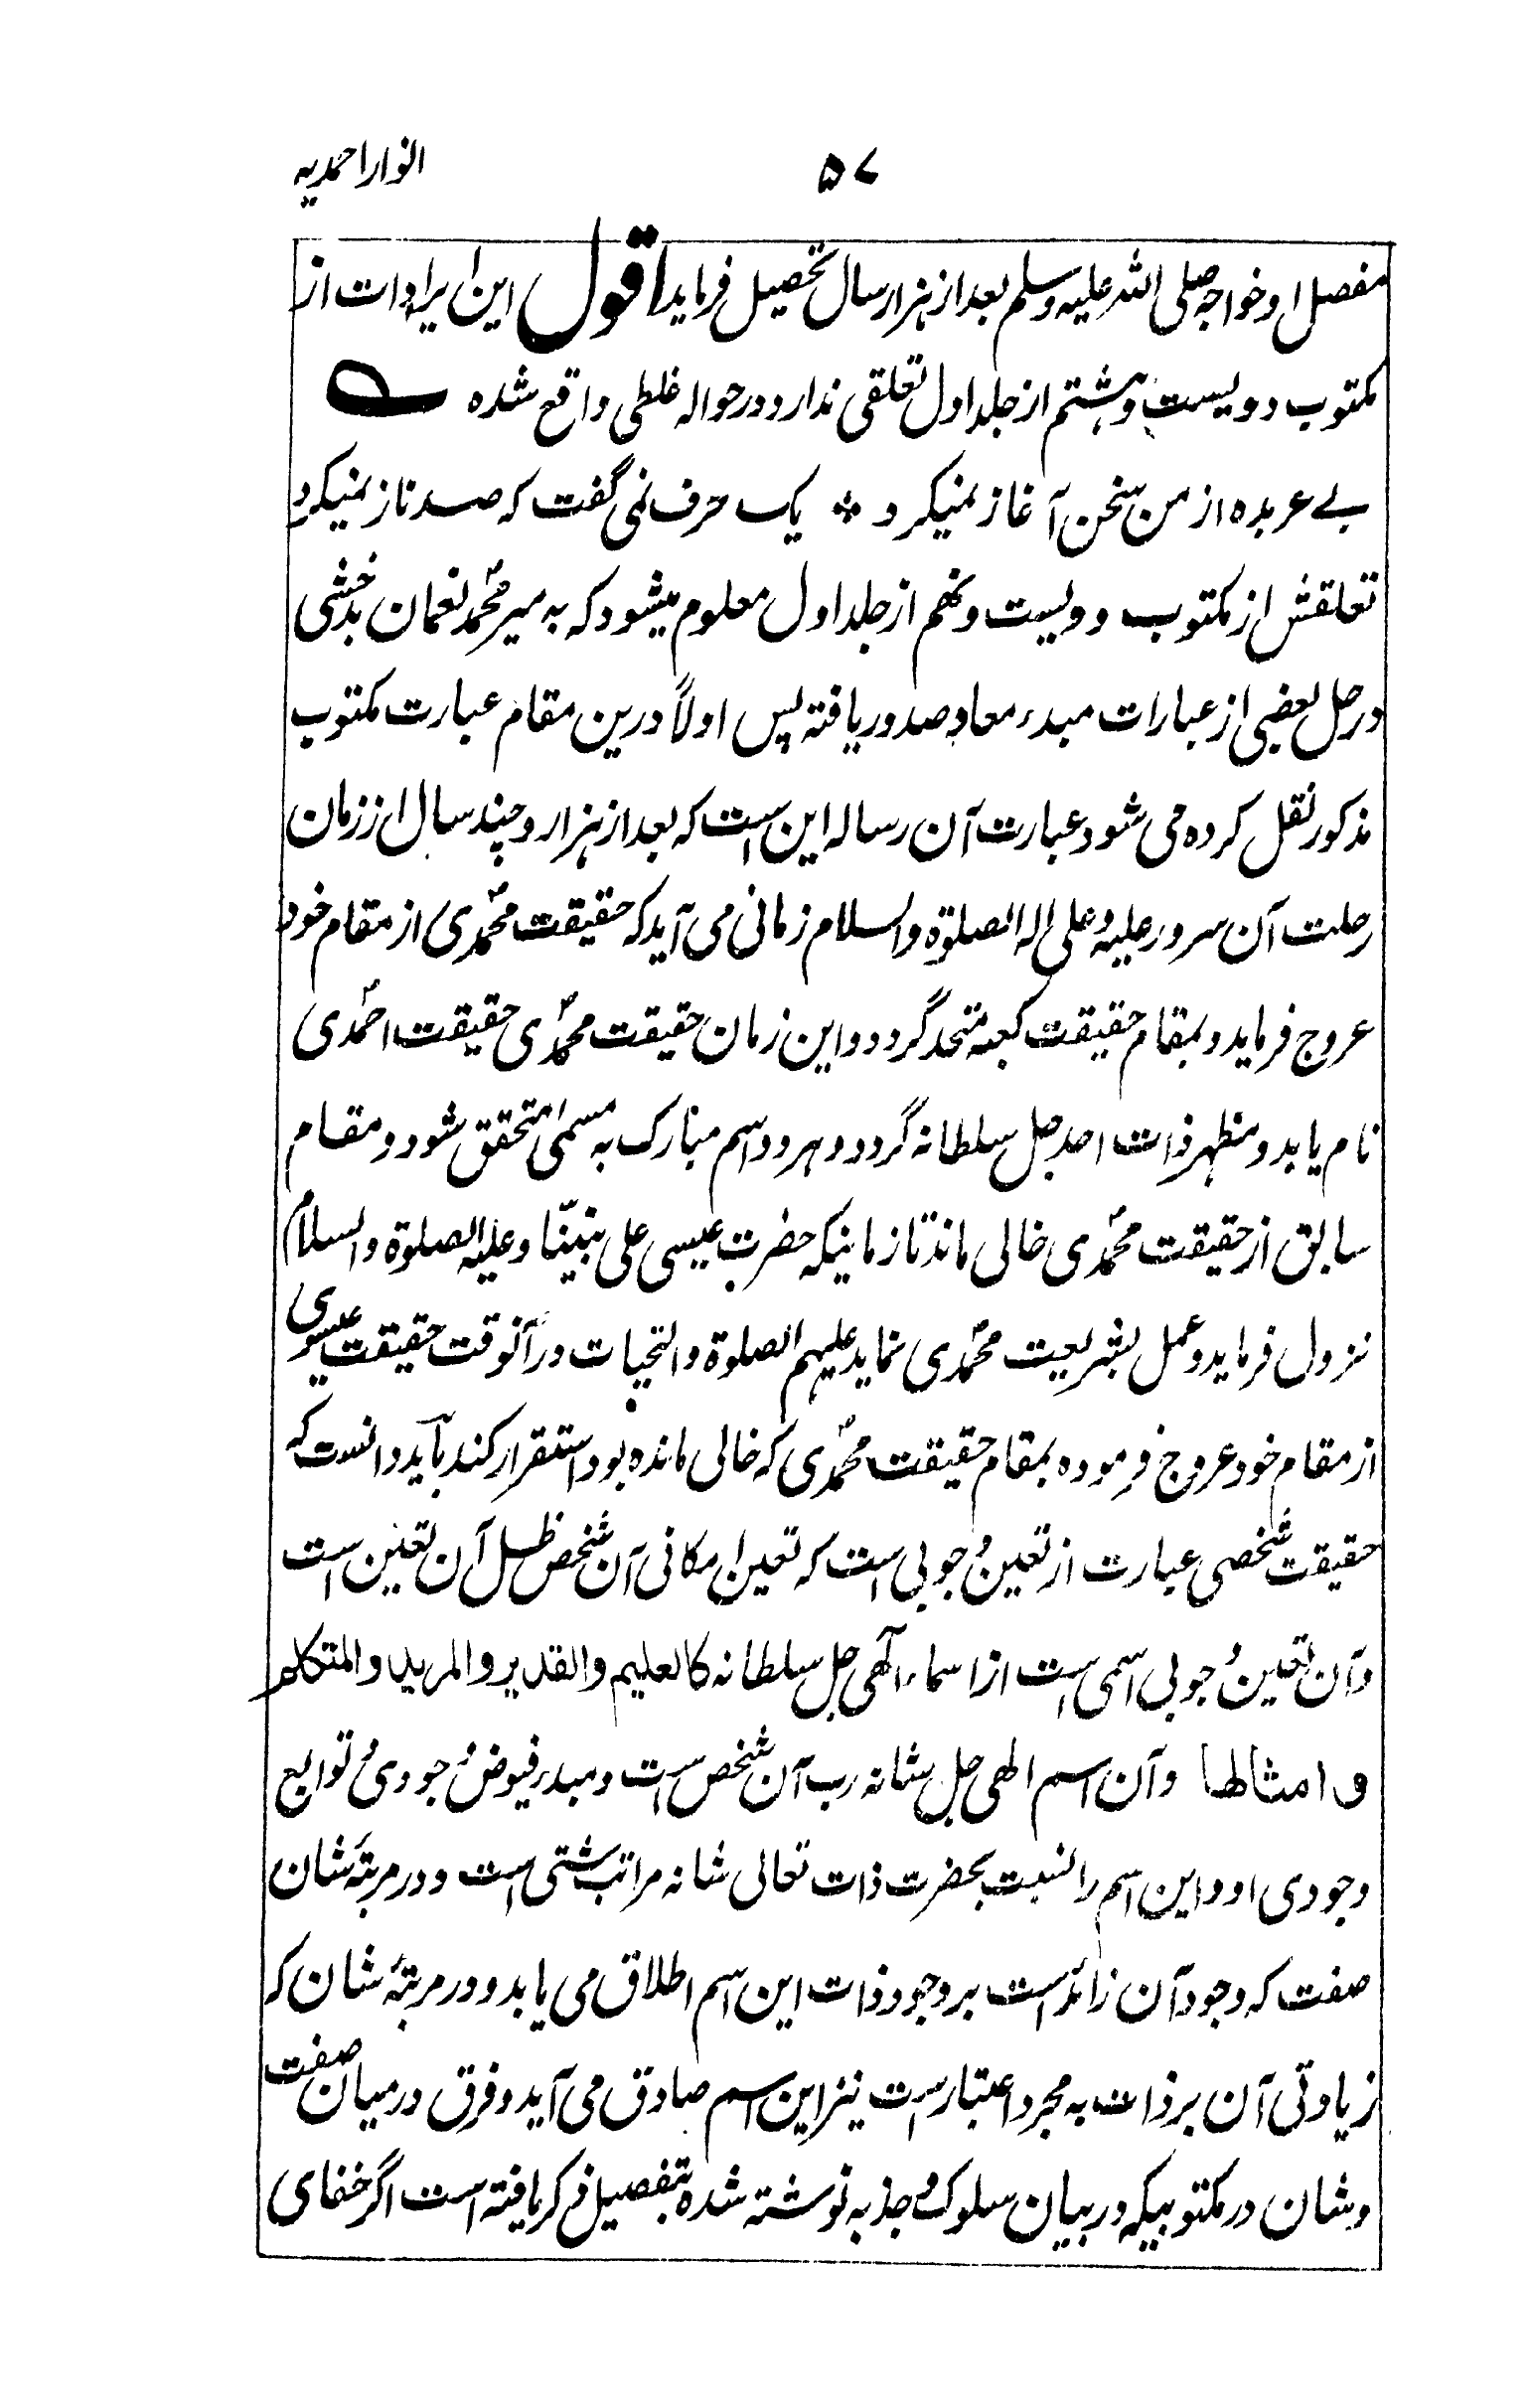 ۵۷ انوار احمدیہ
مفصل او خواجہ صلی اللہ علیہ وسلم بعد از ہزار سال تحصیل فرماید اقول این ایرادات از
مکتوب دویست و ہشتم از جلد اول تعلقی ندارد در حوالہ غلطی واقع شدہ
بے عربدہ از من سخن آغاز نمیکرد * یک حرف نمی گفت کہ صد ناز نمیکرد
تعلقش از مکتوب دویست و نہم از جلد اول معلوم میشود کہ بہ میر محمدؐ نعمان بدخشی
در حل بعضی از عبارات مبدء معاد صدور یافتہ پس اولاً درین مقام عبارت مکتوب
مذکور نقل کردہ می شود عبارت آن رسالہ این است کہ بعد از ہزار و چند سال از زمان
رحلت آن سرور علیہ و علی الہ الصلوۃ والسلام زمانی می آید کہ حقیقت محمدؐی از مقام خود
عروج فرماید و بمقام حقیقت کعبہ متحد گردد و این زمان حقیقت محمدؐی حقیقت احمدؐی
نام یابد و مظہر ذات احد جل سلطانہ گردد و ہر دو اسم مبارک بہ مسمیٰ متحقق شود و مقام
سابق از حقیقت محمدؐی خالی ماند تا زمانیکہ حضرت عیسی علی نبینّا و علیہ الصلوۃ والسلام
نزول فرماید و عمل بشریعت محمدؐی نماید علیہم الصلوۃ والتحیات در آنوقت حقیقت عیسوی
از مقام خود عروج فرمودہ بمقام حقیقت محمدؐی کہ خالی ماندہ بود استقرار کند باید دانست کہ
حقیقت شخصی عبارت از تعین وجوبی است کہ تعین امکانی آن شخص ظل آن تعین است
و آن تعین وجوبی اسمی است از اسماء الٓہی جل سلطانہ کالعلیم والقدیر والمرید والمتکلم
و امثالھا و آن اسم الھی جل شانہ رب آن شخص است و مبدء فیوض وجودی و توابع
وجودی او و این اسم را نسبت بحضرت ذات تعالی شانہ مراتب شتی است و در مرتبۂ شان
صفت کہ وجود آن زائد است بر وجود ذات این اسم اطلاق می یابد و در مرتبۂ شان کہ
زیادتی آن بر ذات بہ مجرد اعتبار است نیز این اسم صادق می آید و فرق درمیان صفت
و شان در مکتوبیکہ در بیان سلوک و جذبہ نوشتہ شدہ بتفصیل ذکر یافتہ است اگر خفای